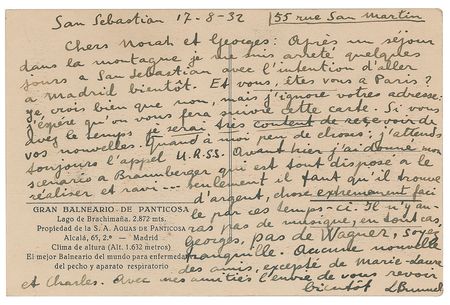 San Sebastian 17-8-32 55 rue San Martin
Chers Norah et Georges: Après un séjour
dans la montagne je me suis arreté quelques
jours a San Sebastian avec l'intention d'aller
a Madrid bientôt. Et vous, êtes vous a Paris?
Je crois bien que non, mais j'ignore votre adresse:
j'espère qu'on vous fera suivre cette carte. Si vous
avez le temps je serai très content de recevoir de
vos nouvelles. Quand à moi peu de choses: j'attends
toujours l'appel U.R.S.S. Avant hier j'ai donné mon
scénario a Braunberger qui est tout disposé a le
réaliser et ravi — seulement il faut qu'il trouve
d'argent, chose extremement faci
le par ces temps-ci. Il n'y au
ras pas de musique; en tout cas,
Georges, pas de Wagner, soyez
tranquille. Aucune nouvelle
des amis, excepté de Marie-Laure
et Charles. Avec mes amitiés l'envie de vous revoir
bientôt LBunuel
GRAN BALNEARIO DE PANTICOSA
Lago de Brachimaña. 2.872 mts.
Propiedad de la S. A. AGUAS DE PANTICOSA
Alcalá, 65, 2.º — Madrid
Clima de altura (Alt. 1.632 metros)
El mejor Balneario del mundo para enfermedades
del pecho y aparato respiratorio